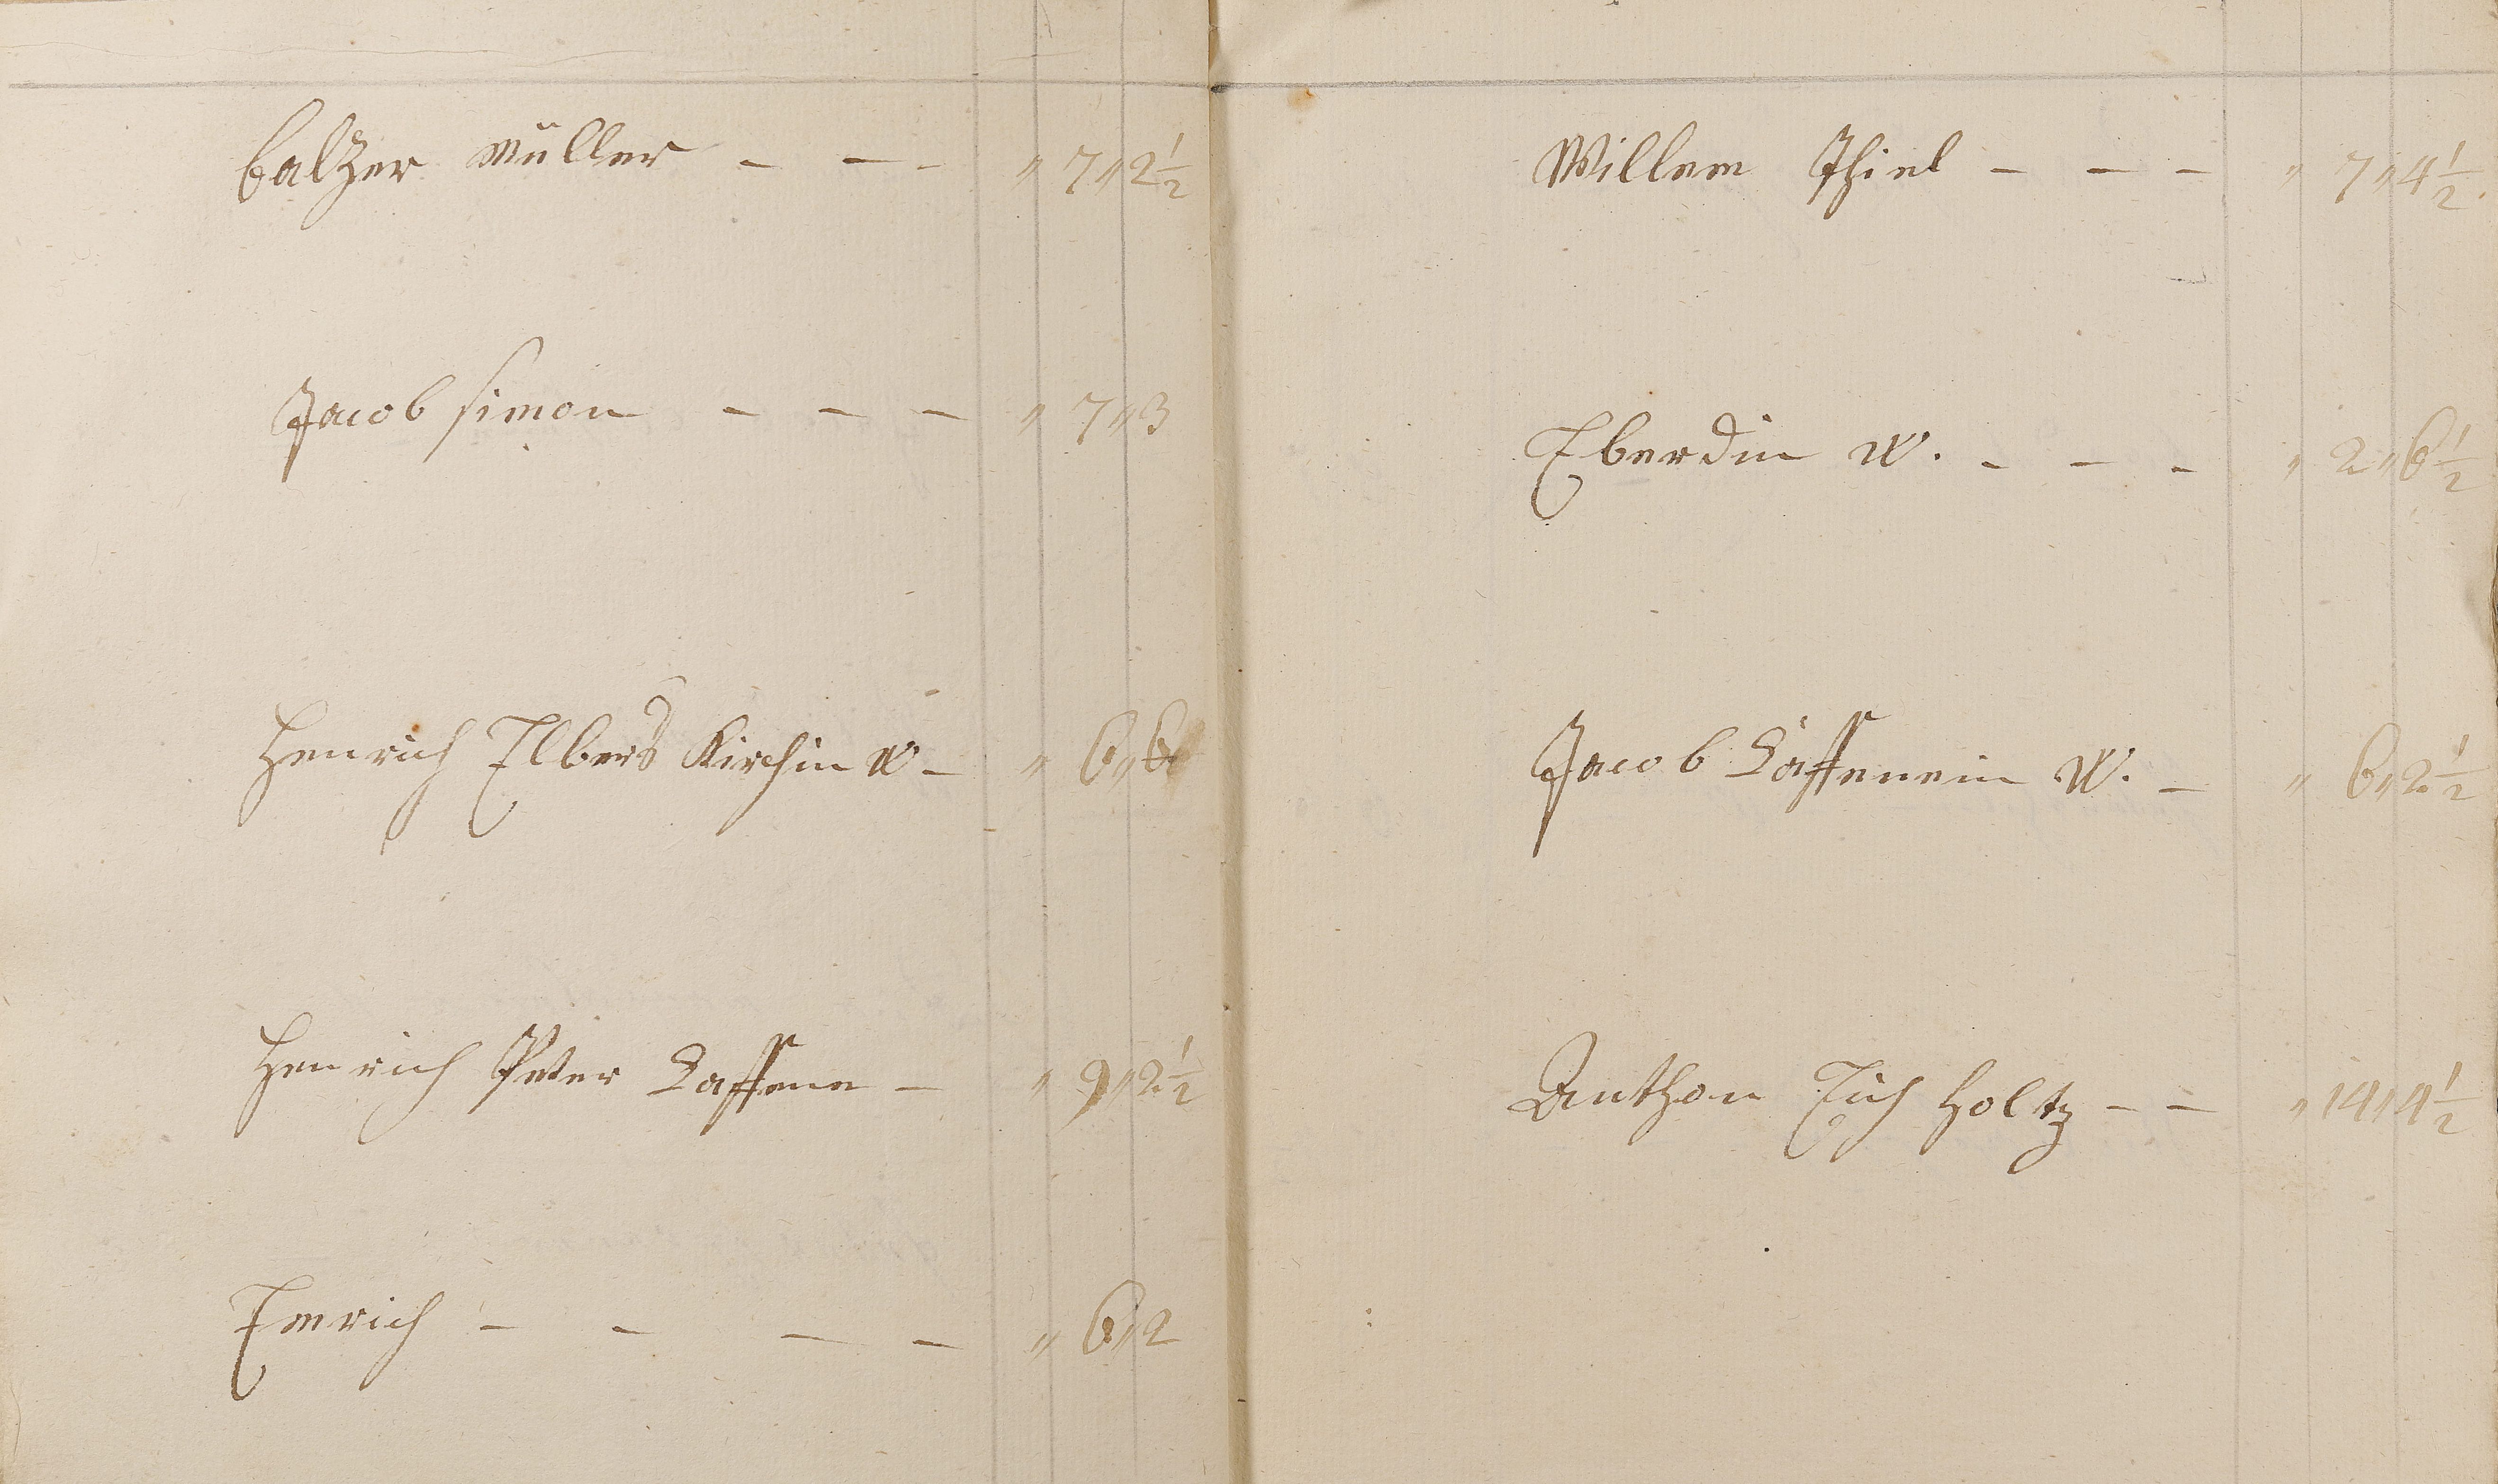 balzer müller - - - " 7 " 2 1/2
Jacob simon - - - " 7 " 3
Henrich Elbers Kirchin W - " 6 " 6
Henrich Peter Saffene - " 9 " 2 1/2
Emrich - - - - " 6 " 2
Willem Thiel - - - " 7 " 4 1/2.
Eberdin W. - - - " 2 " 6 1/2
Jacob Saffenein W. - " 6 " 2 1/2
Anthon Eich holtz - - " 14 " 4 1/2